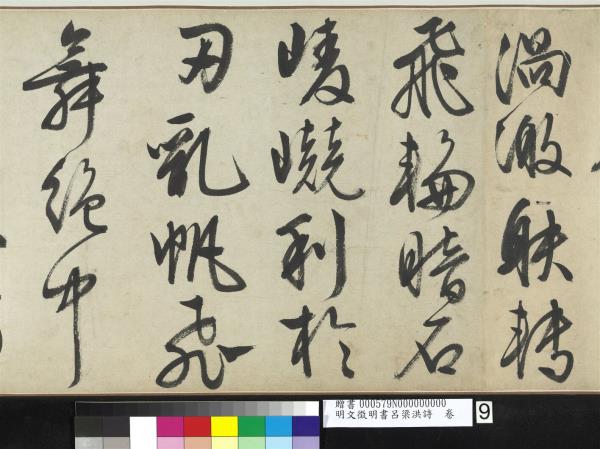 渦激駃轉
飛輪暗石
崚嶢利於
刃亂帆飛
舞絕中
贈書 000579N000000000
明文徵明書呂梁洪詩 卷
9